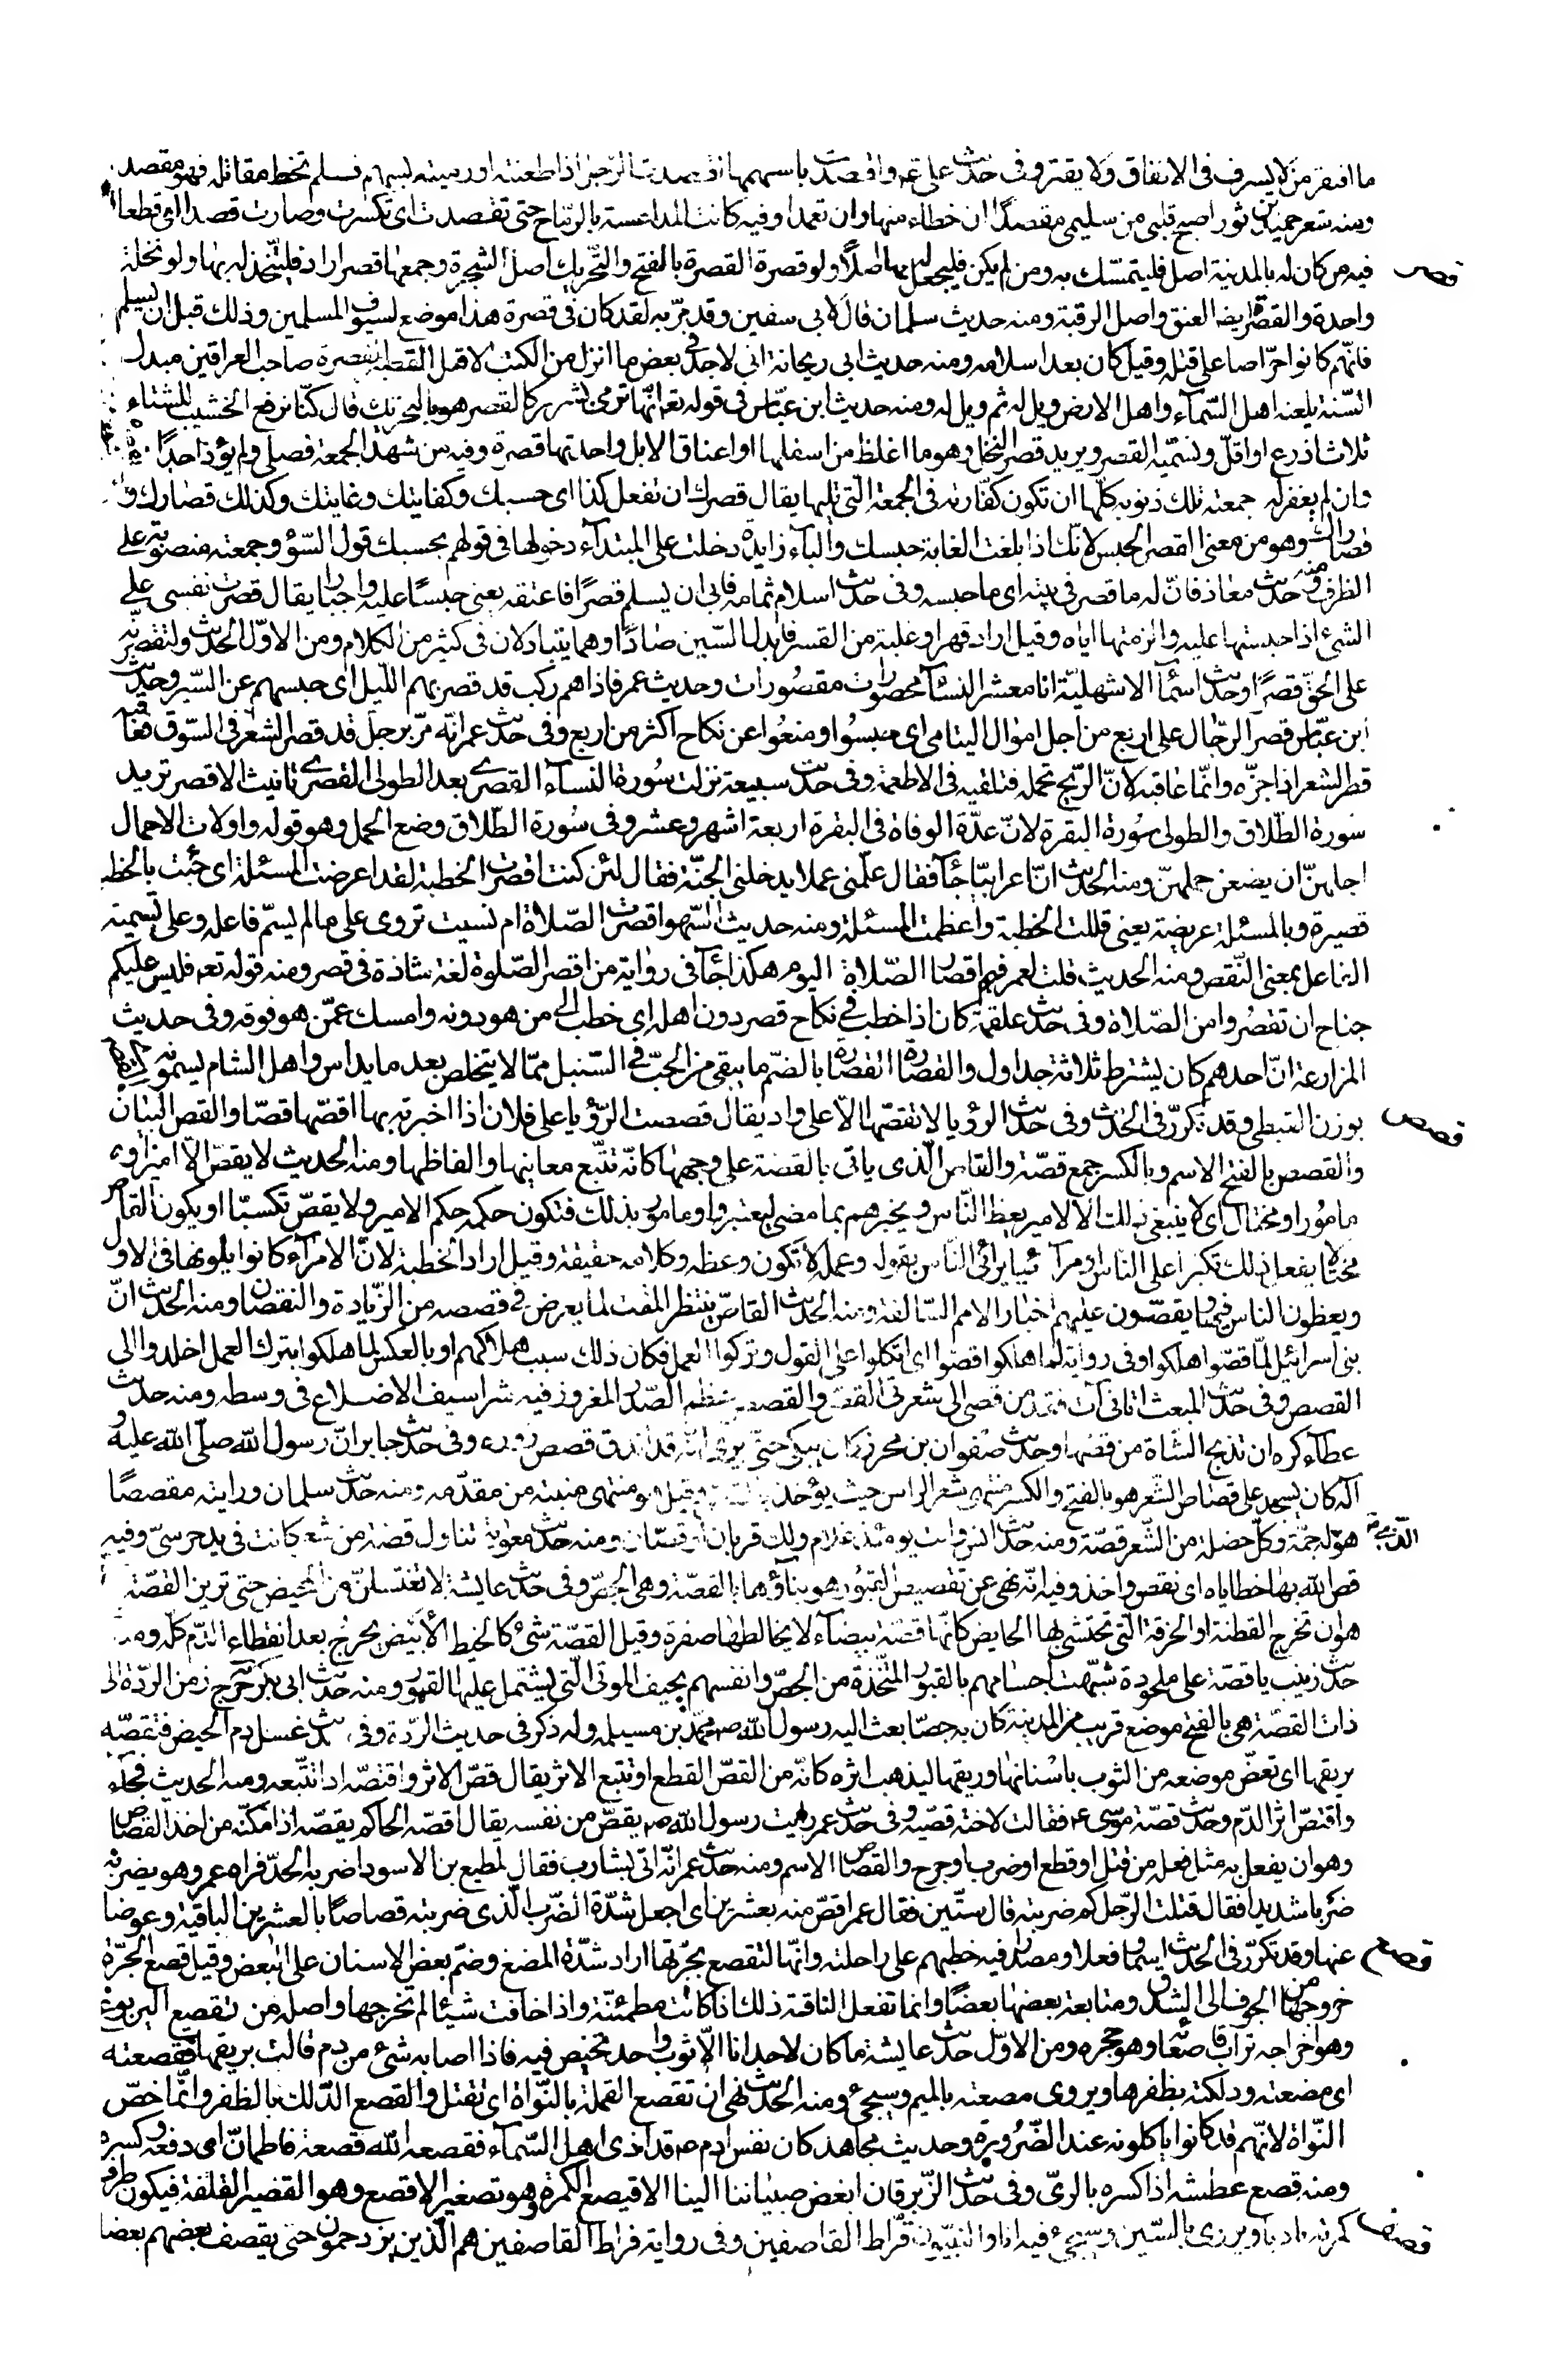 ما افتقر من لا يسرف فى الانفاق ولا يقتر وفى حديث على عم واقصدت باسهمها اقصدت الرجل اذا طعنته او رميته بسهم فلم تخط مقاتله فهو مقصد
ومنه شعر حميد بن ثور اصبح قلبى من سليمى مقصدا ان خطاء منها وان تعمدا وفيه كانت المداعسة بالرماح حتى تقصدت اى تكسرت وصارت قصدا اى قطعا
قصر
فيه من كان له بالمدينة اصل فليتمسك به ومن لم يكن فليجعل له بها اصلا ولو قصرة القصرة بالفتح والتحريك اصل الشجرة وجمعها قصر اراد فليتخذ له بها ولو نخلة
واحدة والقصرة ايضا العنق واصل الرقبة ومنه حديث سلمان قال لابى سفين وقد مر به لقد كان فى قصرة هذا موضع لسيوف المسلمين وذلك قبل ان يسلم
فانهم كانوا حراصا على قتله وقيل كان بعد اسلامه ومنه حديث ابى ريحانة انى لاجد فى بعض ما انزل من الكتب الاقبل القصير القصرة صاحب العراقين مبدل
السنة يلعنه اهل السماء واهل الارض ويل له ثم ويل له ومنه حديث ابن عباس فى قوله تع انها ترمى بشرر كالقصر هو بالتحريك قال كنا نرفع الخشب للشتاء
ثلاث اذرع او اقل ونسميه القصر ويريد قصر النخل وهو ما اغلظ من اسفلها او اعناق الابل واحدتها قصرة وفيه من شهد الجمعة فصلى ولم يؤذ احدا
وان لم يغفر له جمعته تلك ذنوبه كلها ان تكون كفارته فى الجمعة التى تليها يقال قصرك ان تفعل كذا اى حسبك وكفايتك وغايتك وكذلك قصارك و
قصاراك وهو من معنى القصر الحبس لانك اذا بلغت الغاية حبسك والباء زايدة دخلت على المبتداء دخولها فى قولهم بحسبك قول السؤ وجمعته منصوبة على
الظرف ومنه حديث معاذ فان له ما قصر فى بيته اى ما حبسه وفى حديث اسلام ثمامة فابى ان يسلم قصرا فاعتقه يعنى حبسا عليه واجبارا يقال قصرت نفسى على
الشئ اذا حبستها عليه والزمتها اياه وقيل اراد قهرا وغلبة من القسر فابدل السين صادا وهما يتبادلان فى كثير من الكلام ومن الاول الحديث ولتقصرنه
على الحق قصرا وحديث اسماء الاشهلية انا معشر النساء محصورات مقصورات وحديث عمر فاذا هم ركب قد قصر بهم الليل اى حبسهم عن السير وحديث
ابن عباس قصر الرجال على اربع من اجل اموال اليتامى اى حبسوا ومنعوا عن نكاح اكثر من اربع وفى حديث عمر انه مر برجل قد قصر الشعر فى السوق فعاقبه
قصر الشعر اذا جزه وانما عاقبه لان الريح تحمله فتلقيه فى الاطعمة وفى حديث سبيعة نزلت سورة النساء القصرى بعد الطولى القصرى تانيث الاقصر تريد
سورة الطلاق والطولى سورة البقرة لان عدة الوفاة فى البقرة اربعة اشهر وعشر وفى سورة الطلاق وضع الحمل وهو قوله واولات الاحمال
اجلهن ان يضعن حملهن ومنه الحديث ان اعرابيا جاء فقال علمنى عملا يدخلنى الجنة فقال لئن كنت اقصرت الخطبة لقد اعرضت المسئلة اى جئت بالخط
قصيرة وبالمسئلة عريضة يعنى قللت الخطبة واعظمت المسئلة ومنه حديث السهو اقصرت الصلاة ام نسيت تروى على ما لم يسم فاعله وعلى تسمية
الفاعل بمعنى النقص ومنه الحديث قلت لعمر فيم اقصار الصلاة اليوم هكذا جاء فى رواية من اقصر الصلوة لغة شاذة فى قصر ومنه قوله تعم فليس عليكم
جناح ان تقصروا من الصلاة وفى حديث علقمة كان اذا خطب فى نكاح قصر دون اهله اى خطب الى من هو دونه وامسك عمن هو فوقه وفى حديث
المزارعة ان احدهم كان يشترط ثلاثة جداول والقصارة القصارة بالضم ما يبقى من الحب فى السنبل مما لا يتخلص بعد ما يداس واهل الشام يسمونه القصرى
قصص
بوزن القبطى وقد تكرر فى الحديث وفى حديث الرؤيا لا تقصها الا على واد يقال قصصت الرؤيا على فلان اذا اخبرته بها اقصها قصا والقص البيان
والقصص بالفتح الاسم وبالكسر جمع قصة والقاص الذى ياتى بالقصة على وجهها كانه تتبع معانيها والفاظها ومنه الحديث لا يقص الا امير او
مامور او مختال اى لا ينبغى ذلك الا لامير يعظ الناس ويخبرهم بما مضى ليعتبروا وما مور بذلك فتكون حكمه حكم الامير ولا يقص تكسبا او يكون القاص
مختالا يفعل ذلك تكبرا على الناس او مرآئيا يرائى الناس بقوله وعمله لا تكون وعظه وكلامه حقيقة وقيل اراد الخطبة لان الامرآء كانوا يلونها فى الاول
ويعظون الناس فيها ويقصون عليهم اخبار الامم السالفة ومنه الحديث القاص ينتظر المقت لما يعرض فى قصصه من الزيادة والنقصان ومنه الحديث ان
بنى اسرائيل لما قصوا هلكوا وفى رواية لما هلكوا قصوا اى اتكلوا على القول وتركوا العمل فكان ذلك سبب هلاكهم او بالعكس لما هلكوا بترك العمل اخلدوا الى
القصص وفى حديث المبعث اتانى آت فقد من قصى الى شعرتى القص والقصص عظم الصدر المغروز فيه شراسيف الاضلاع فى وسطه ومنه حديث
عطاء كره ان تذبح الشاة من قصها وحديث صفوان بن محرز كان يبكى حتى يرى انه قد اندق قصص زوره وفى حديث جابر ان رسول الله صلى الله عليه و
آله كان يسجد على قصاص الشعر هو بالفتح والكسر منتهى شعر الراس حيث يؤخذ وقيل هو منتهى منبته من مقدمه ومنه حديث سلمان ورايته مقصصا
هو الذى له جمة وكل خصلة من الشعر قصة ومنه حديث انس وانت يومئذ غلام ولك قرنان او قصتان ومنه حديث معوية تناول قصة من شعر كانت فى يد حرسى وفيه
قص الله بها خطاياه اى نقص واخذ وفيه انه نهى عن تقصيص القبور هو بناؤها بالقصة وهى الجص وفى حديث عايشة لا تغتسلن من المحيض حتى ترين القصة
هو ان تخرج القطنة او الخرقة التى تحتشى بها الحايض كانها قصة بيضاء لا يخالطها صفرة وقيل القصة شئ كالخيط الابيض يخرج بعد انقطاع الدم كله ومنه
حديث زينب يا قصة على ملحودة شبهت اجسامهم بالقبور المتخذة من الجص وانفسهم بجيف الموتى التى يشتمل عليها القبور ومنه حديث ابى بكر خرج زمن الردة الى
ذات القصة هى بالفتح موضع قريب من المدينة كان به جصا بعث اليه رسول الله ص محمد بن مسيلمه وله ذكر فى حديث الردة وفى حديث غسل دم الحيض فتقصه
بريقها اى تعض موضعه من الثوب باسنانها وريقها ليذهب اثره كانه من القص القطع او تتبع الاثر يقال قص الاثر واقتصه اذا تتبعه ومنه الحديث فجاء
واقتص اثر الدم وحديث قصة موسى عم فقالت لاخته قصيه وفى حديث عمر رايت رسول الله ص يقص من نفسه يقال اقصه الحاكم يقصه اذا مكنه من اخذ القصاص
وهو ان يفعل به مثل فعله من قتل او قطع او ضرب او جرح والقصاص الاسم ومنه حديث عمر انه اتى بشارب فقال لمطيع بن الاسود اضربه الحد فراه عمر وهو يضربه
ضربا شديدا فقال قتلت الرجل كم ضربته قال ستين فقال عمر اقص منه بعشرين اى اجعل شدة الضرب الذى ضربته قصاصا بالعشرين الباقية وعوضا
قصع
عنها وقد تكرر فى الحديث اسما وفعلا ومصدرا فيه خطبهم على راحلته وانها لتقصع بجرتها اراد شدة المضغ وضم بعض الاسنان على البعض وقيل قصع الجرة
خروجها من الجوف الى الشدق ومتابعة بعضها بعضا وانما تفعل الناقة ذلك اذا كانت مطمئنة واذا خافت شيئا لم تخرجها واصله من تقصيع اليربوع
وهو اخراجه تراب قاصعائه وهو جحره ومن الاول حديث عايشة ما كان لاحدانا الا ثوب واحد تحيض فيه فاذا اصابه شئ من دم قالت بريقها فقصعته
اى مضعته ودلكته بظفرها ويروى مصعته بالميم وسيجئ ومنه الحديث نهى ان تقصع القملة بالنواة اى تقتل والقصع الدلك بالظفر وانما خص
النواة لانهم قد كانوا ياكلونه عند الضرورة وحديث مجاهد كان نفس ادم ص قد آذى اهل السماء فقصعه الله قصعة فاطمان اى دفعه وكسره
ومنه قصع عطشه اذا كسره بالرى وفى حديث الزبرقان ابغض صبياننا الينا الاقيصع الكمرة وهو تصغير الاقصع وهو القصير القلفة فيكون طرف
قصف
كمرته باديا ويروى بالسين وسيجئ فيه انا والنبيون فراط القاصفين وفى رواية فراط القاصفين هم الذين يزدحمون حتى يقصف بعضهم بعضا